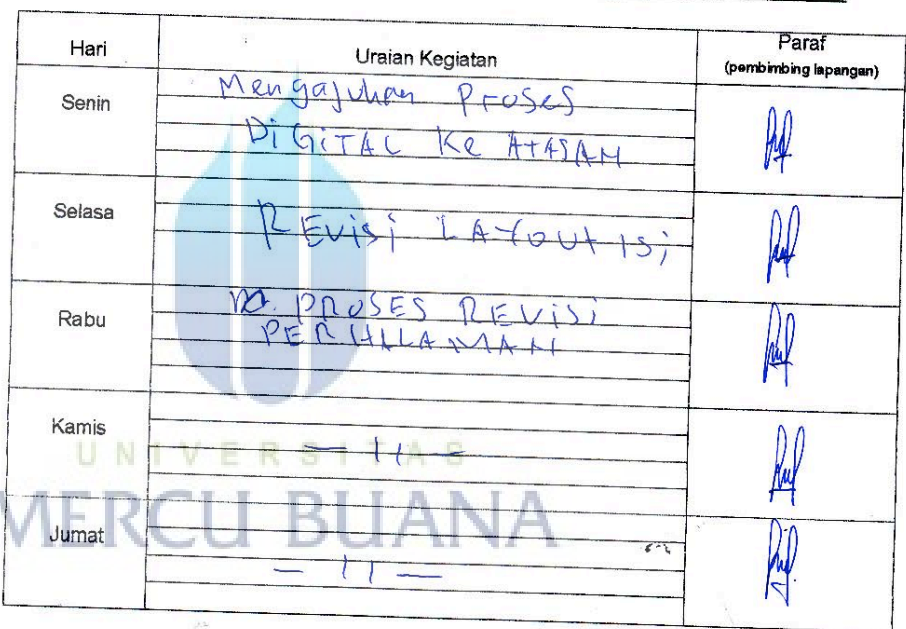 Hari Uraian Kegiatan Paraf
(pembimbing lapangan)
Senin Mengajuhan Proses
DiGiTAL Ke ATASAN
Selasa REvisi LAYOUT isi
Rabu PROSES REVisi
PERHALAMAN
Kamis — 11 —
UNIVERSITAS
MERCU BUANA
Jumat — 11 —